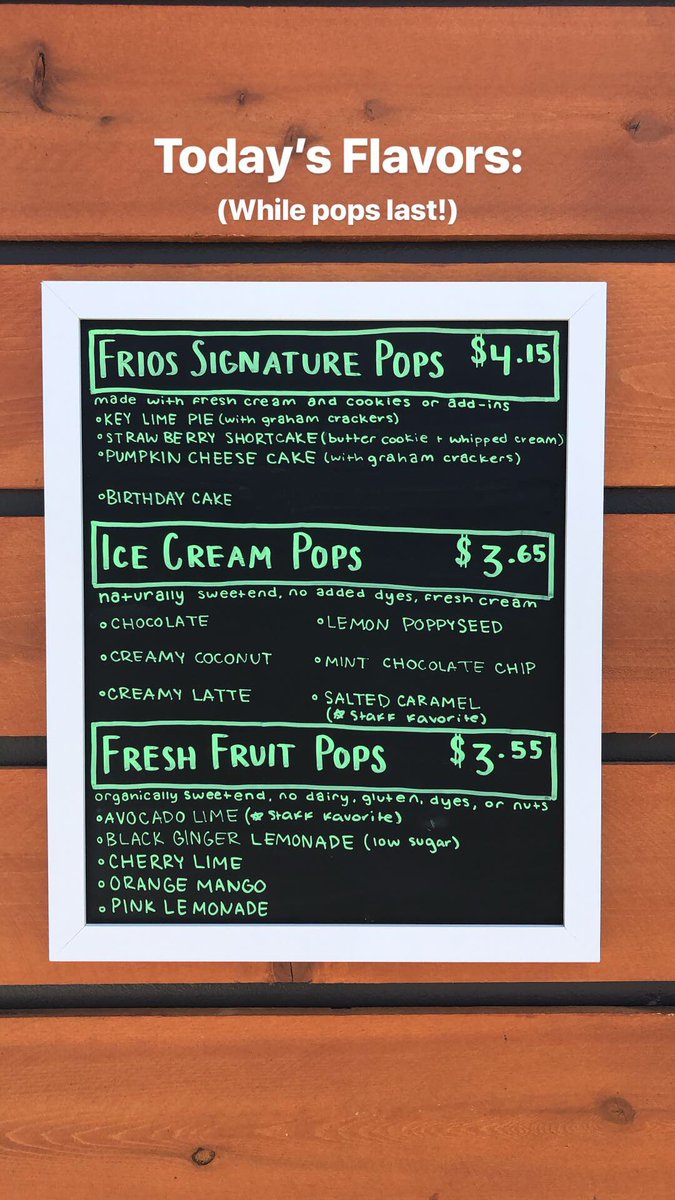 Today's Flavors:
(While pops last!)
FRIOS SIGNATURE POPS $4.15
made with fresh cream and cookies or add-ins
◦KEY LIME PIE (with graham crackers)
◦STRAWBERRY SHORTCAKE (butter cookie + whipped cream)
◦PUMPKIN CHEESE CAKE (with graham crackers)
◦BIRTHDAY CAKE
ICE CREAM POPS $3.65
naturally sweetend, no added dyes, fresh cream
◦CHOCOLATE ◦LEMON POPPYSEED
◦CREAMY COCONUT ◦MINT CHOCOLATE CHIP
◦CREAMY LATTE ◦SALTED CARAMEL
(★ staff favorite)
FRESH FRUIT POPS $3.55
organically sweetend, no dairy, gluten, dyes, or nuts
◦AVOCADO LIME (★ staff favorite)
◦BLACK GINGER LEMONADE (low sugar)
◦CHERRY LIME
◦ORANGE MANGO
◦PINK LEMONADE